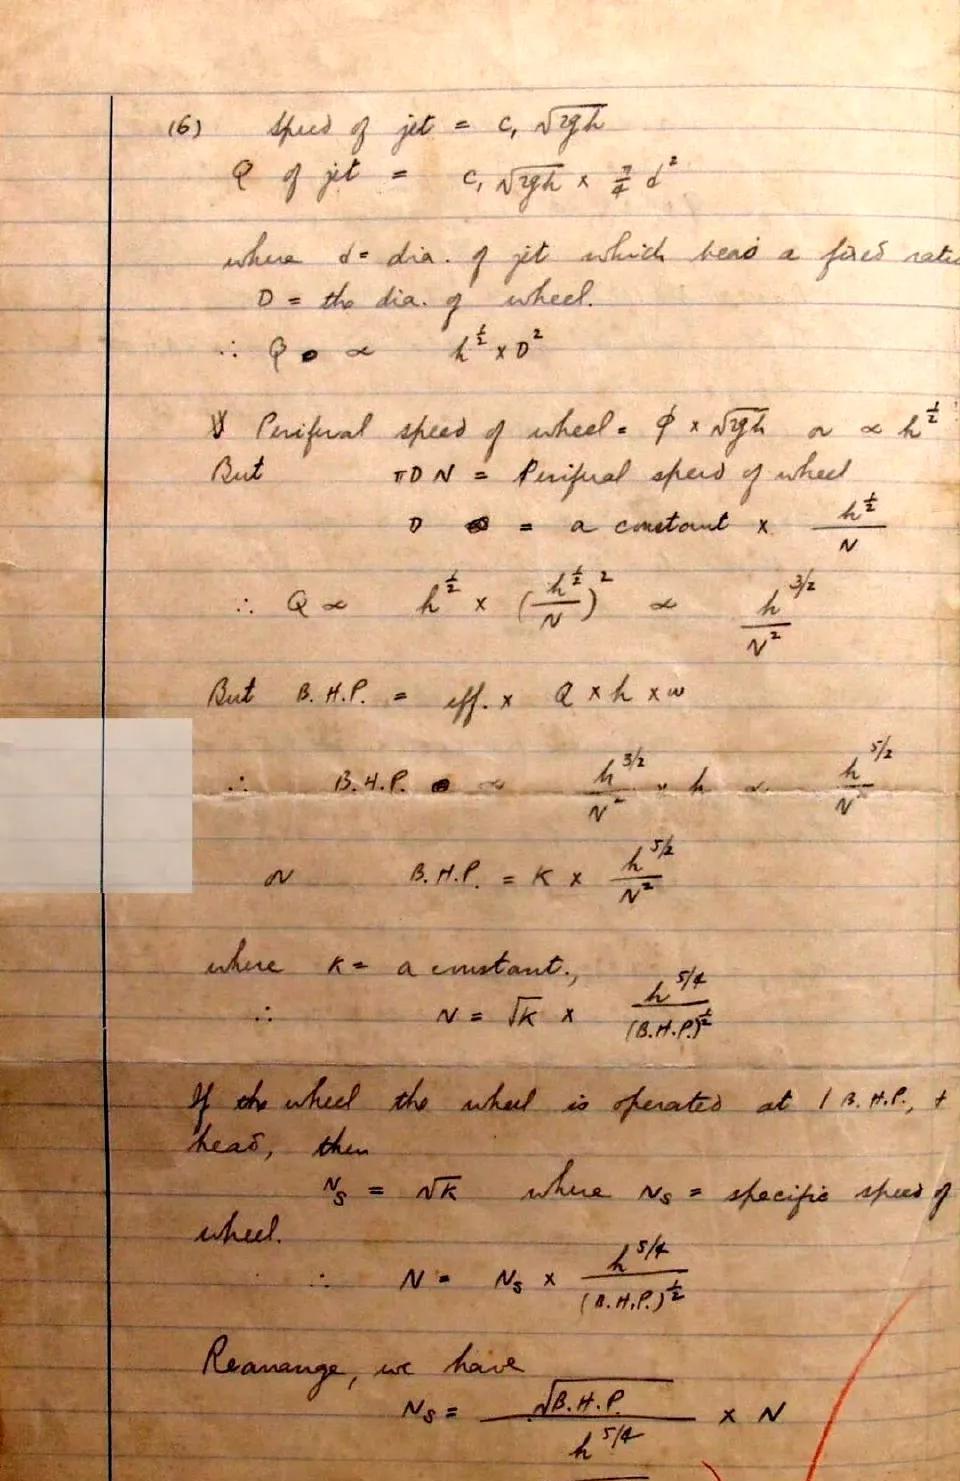 (6) Speed of jet = C₁ √2gh
Q of jet = C₁ √2gh × π/4 d²
where d = dia. of jet which bears a fixed ratio
D = the dia. of wheel.
∴ Q ∝ h^½ × D²
Periferal speed of wheel = φ × √2gh or ∝ h^½
But πDN = Periferal speed of wheel
D = a constant × h^½/N
∴ Q ∝ h^½ × (h^½/N)² ∝ h^3/2/N²
But B.H.P. = eff. × Q × h × w
∴ B.H.P. ∝ h^3/2/N² × h ∝ h^5/2/N²
or B.H.P. = K × h^5/2/N²
where K = a constant.,
∴ N = √K × h^5/4/(B.H.P.)^½
If the wheel the wheel is operated at 1 B.H.P., +
head, then
Ns = √K where Ns = specific speed of
wheel.
∴ N = Ns × h^5/4/(B.H.P.)^½
Rearange, we have
Ns = √B.H.P./h^5/4 × N